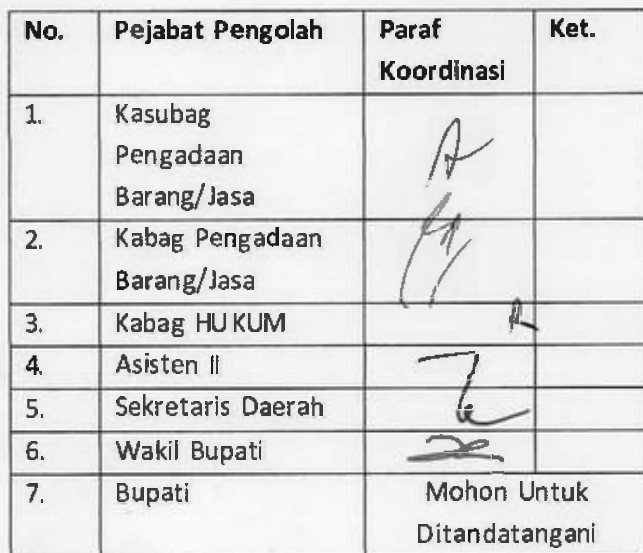 No. Pejabat Pengolah Paraf Ket.
Koordinasi
1. Kasubag
Pengadaan
Barang/Jasa
2. Kabag Pengadaan
Barang/Jasa
3. Kabag HUKUM
4. Asisten II
5. Sekretaris Daerah
6. Wakil Bupati
7. Bupati Mohon Untuk
Ditandatangani